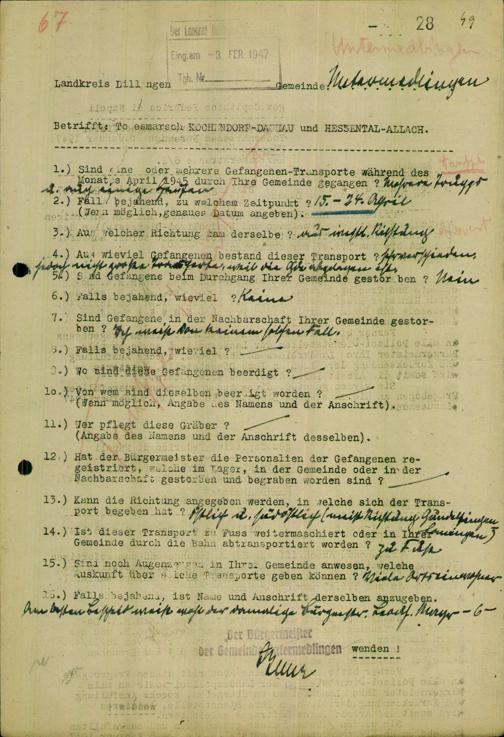 67
28
49
Untermedlingen
Der Landrat
Eing.am -3. FEB. 1947
Tgb. Nr.
Landkreis Dillingen Gemeinde: Untermedlingen
Betrifft: Todesmarsch KOCHENDORF-DACHAU und HESSENTAL-ALLACH.
1.) Sind eine oder mehrere Gefangenen-Transporte während des
Monats April 1945 durch Ihre Gemeinde gegangen ? Mehrere Trupps
u. auch einige
2.) Falls bejahend, zu welchem Zeitpunkt ? 15. - 24. April
(Wenn möglich, genaues Datum angeben).
3.) Aus welcher Richtung kam derselbe ? aus westl. Richtung
4.) Aus wieviel Gefangenen bestand dieser Transport ? verschieden,
jedoch nicht große Transporte, weil die
5.) Sind Gefangene beim Durchgang Ihrer Gemeinde gestorben ? Nein
6.) Falls bejahend, wieviel ? Keine
7.) Sind Gefangene in der Nachbarschaft Ihrer Gemeinde gestor-
ben ? Ich weiß von keinem solchen Fall.
8.) Falls bejahend, wieviel ?
9.) Wo sind diese Gefangenen beerdigt ?
10.) Von wem sind dieselben beerdigt worden ?
(Wenn möglich, Angabe des Namens und der Anschrift).
11.) Wer pflegt diese Gräber ?
(Angabe des Namens und der Anschrift desselben).
12.) Hat der Bürgermeister die Personalien der Gefangenen re-
geistriert, welche im Lager, in der Gemeinde oder in der
Nachbarschaft gestorben und begraben worden sind ?
13.) Kann die Richtung angegeben werden, in welche sich der Trans-
port begeben hat ? östlich u. südöstlich (meist Richtung Gundelfingen
14.) Ist dieser Transport zu Fuss weitermaschiert oder in Ihrer
Gemeinde durch die Bahn abtransportiert worden ? zu Fuß
15.) Sind noch Augenzeugen in Ihrer Gemeinde anwesen, welche
Auskunft über solche Transporte geben können ? Viele Ortseinwohner
16.) Falls bejahend, ist Name und Anschrift derselben anzugeben.
Am besten Bescheid weiß wohl der damalige Bürgermstr. Mayr - 6 -
Der Bürgermeister
der Gemeinde Untermedlingen wenden !